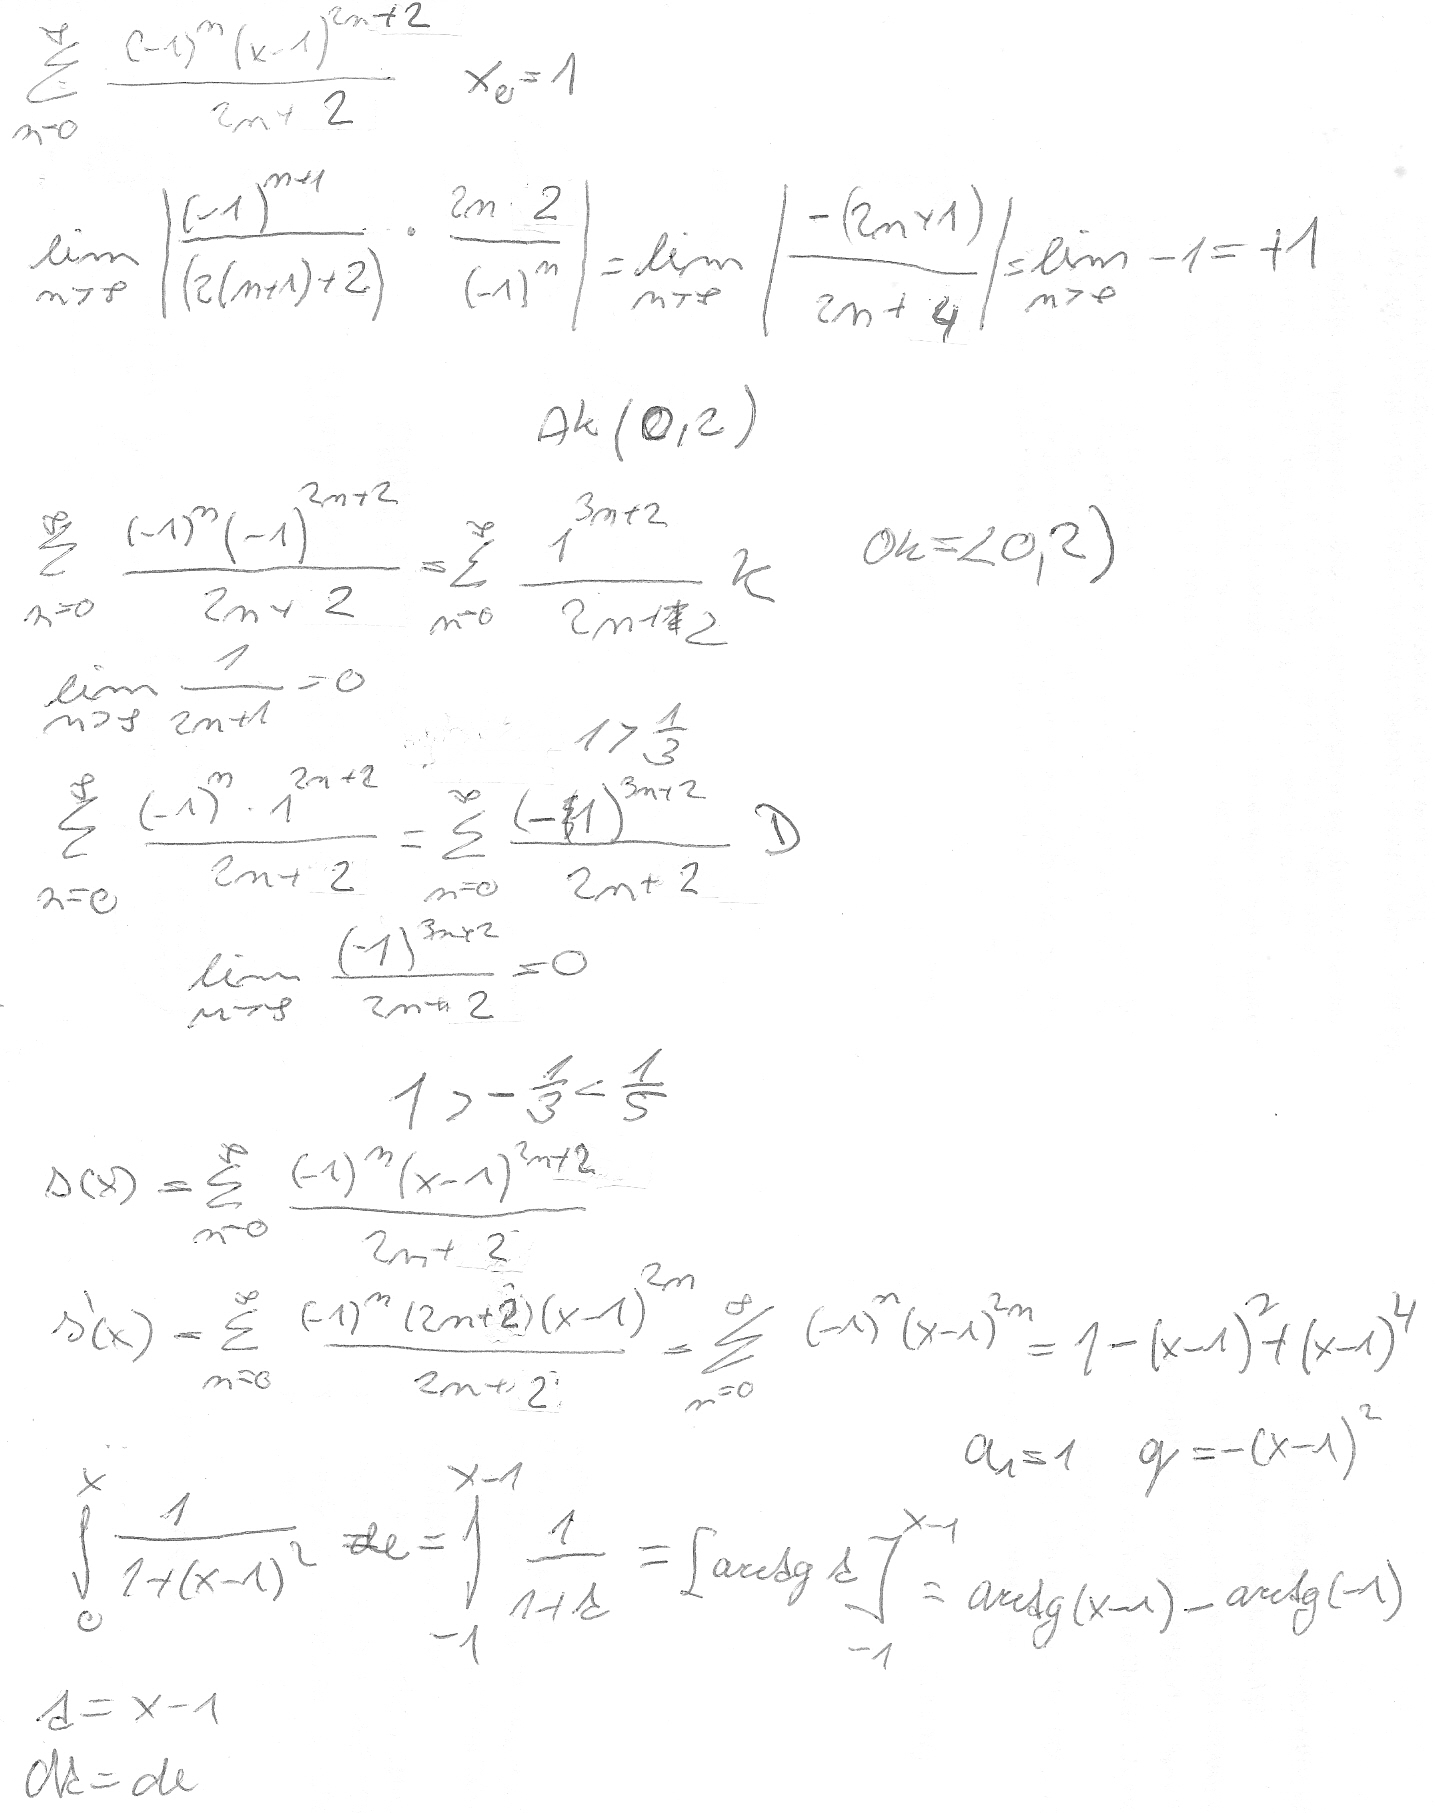 $\sum_{n=0}^{\infty} \frac{(-1)^n (x-1)^{2n+2}}{2n+2} \quad x_0 = 1$
$\lim_{n \to \infty} \left| \frac{(-1)^{n+1}}{(2(n+1)+2)} \cdot \frac{2n \ 2}{(-1)^n} \right| = \lim_{n \to \infty} \left| \frac{-(2n+1)}{2n+4} \right| = \lim_{n \to \infty} -1 = +1$
$Ak (0,2)$
$\sum_{n=0}^{\infty} \frac{(-1)^n (-1)^{2n+2}}{2n+2} = \sum_{n=0}^{\infty} \frac{1^{3n+2}}{2n+2} \ K \quad Ok = <0,2)$
$\lim_{n \to \infty} \frac{1}{2n+1} = 0$
$1 > \frac{1}{3}$
$\sum_{n=0}^{\infty} \frac{(-1)^n \cdot 1^{2n+2}}{2n+2} = \sum_{n=0}^{\infty} \frac{(-1)^{3n+2}}{2n+2} \ D$
$\lim_{n \to \infty} \frac{(-1)^{3n+2}}{2n+2} = 0$
$1 > -\frac{1}{3} < \frac{1}{5}$
$s(x) = \sum_{n=0}^{\infty} \frac{(-1)^n (x-1)^{2n+2}}{2n+2}$
$s'(x) = \sum_{n=0}^{\infty} \frac{(-1)^n (2n+2)(x-1)^{2n}}{2n+2} = \sum_{n=0}^{\infty} (-1)^n (x-1)^{2n} = 1-(x-1)^2+(x-1)^4$
$a_1 = 1 \quad q = -(x-1)^2$
$\int_0^x \frac{1}{1+(x-1)^2} dx = \int_{-1}^{x-1} \frac{1}{1+t} = [arctg \ t]_{-1}^{x-1} = arctg(x-1) - arctg(-1)$
$t = x-1$
$dt = dx$